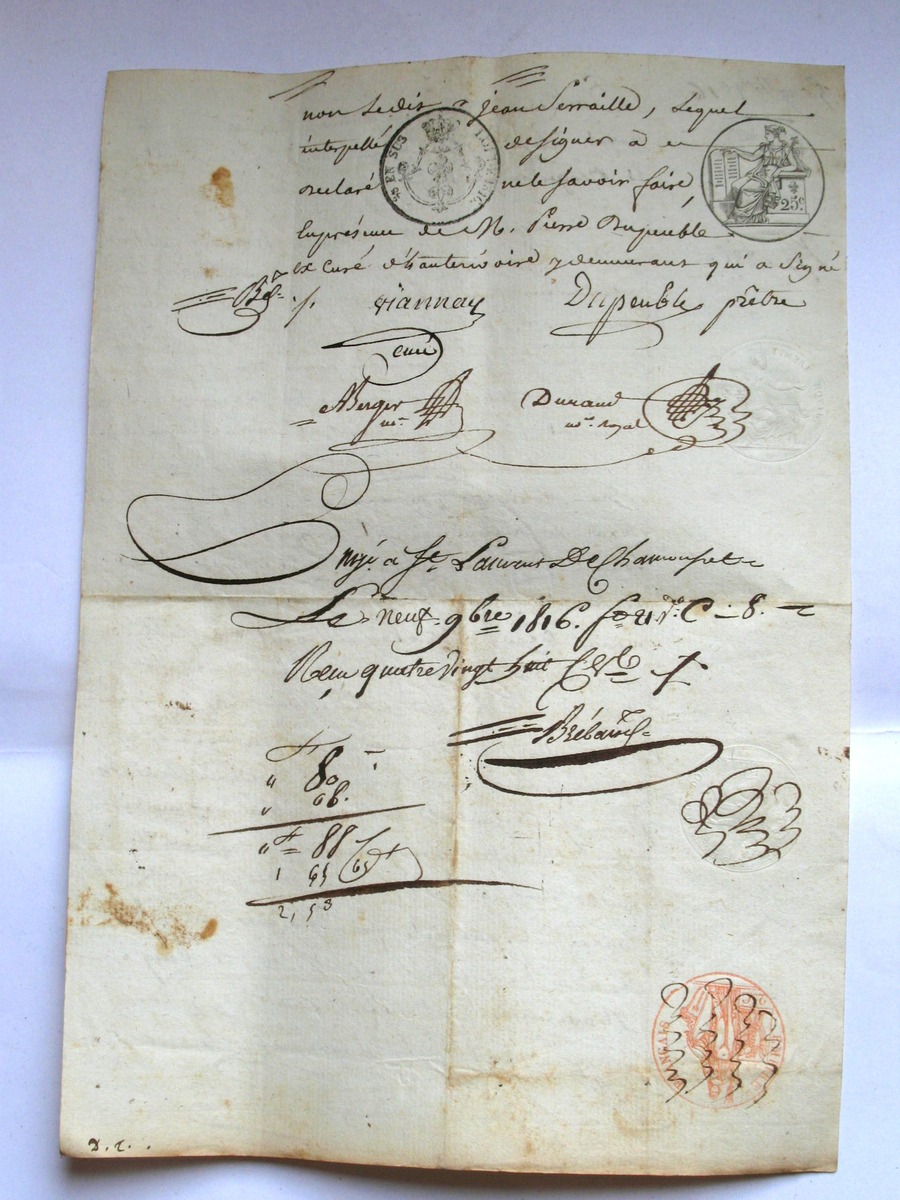 non ledit Jean Serraille, lequel
interpellé de signer à
declaré ne le savoir faire,
En présence de M. Pierre Dupeuble
ex curé d'hauterivoire y demeurant qui a Signé
Dupeuble prêtre
curé
Berger Durand
nre. nre. royal
EN SUS
25c
à St. Laurent De Chamousset
Le neuf 9bre 1816. fo 21 Vo C 8.
Reçu quatre vingt huit
80
08.
88
1 65
2,53
D. C. . .